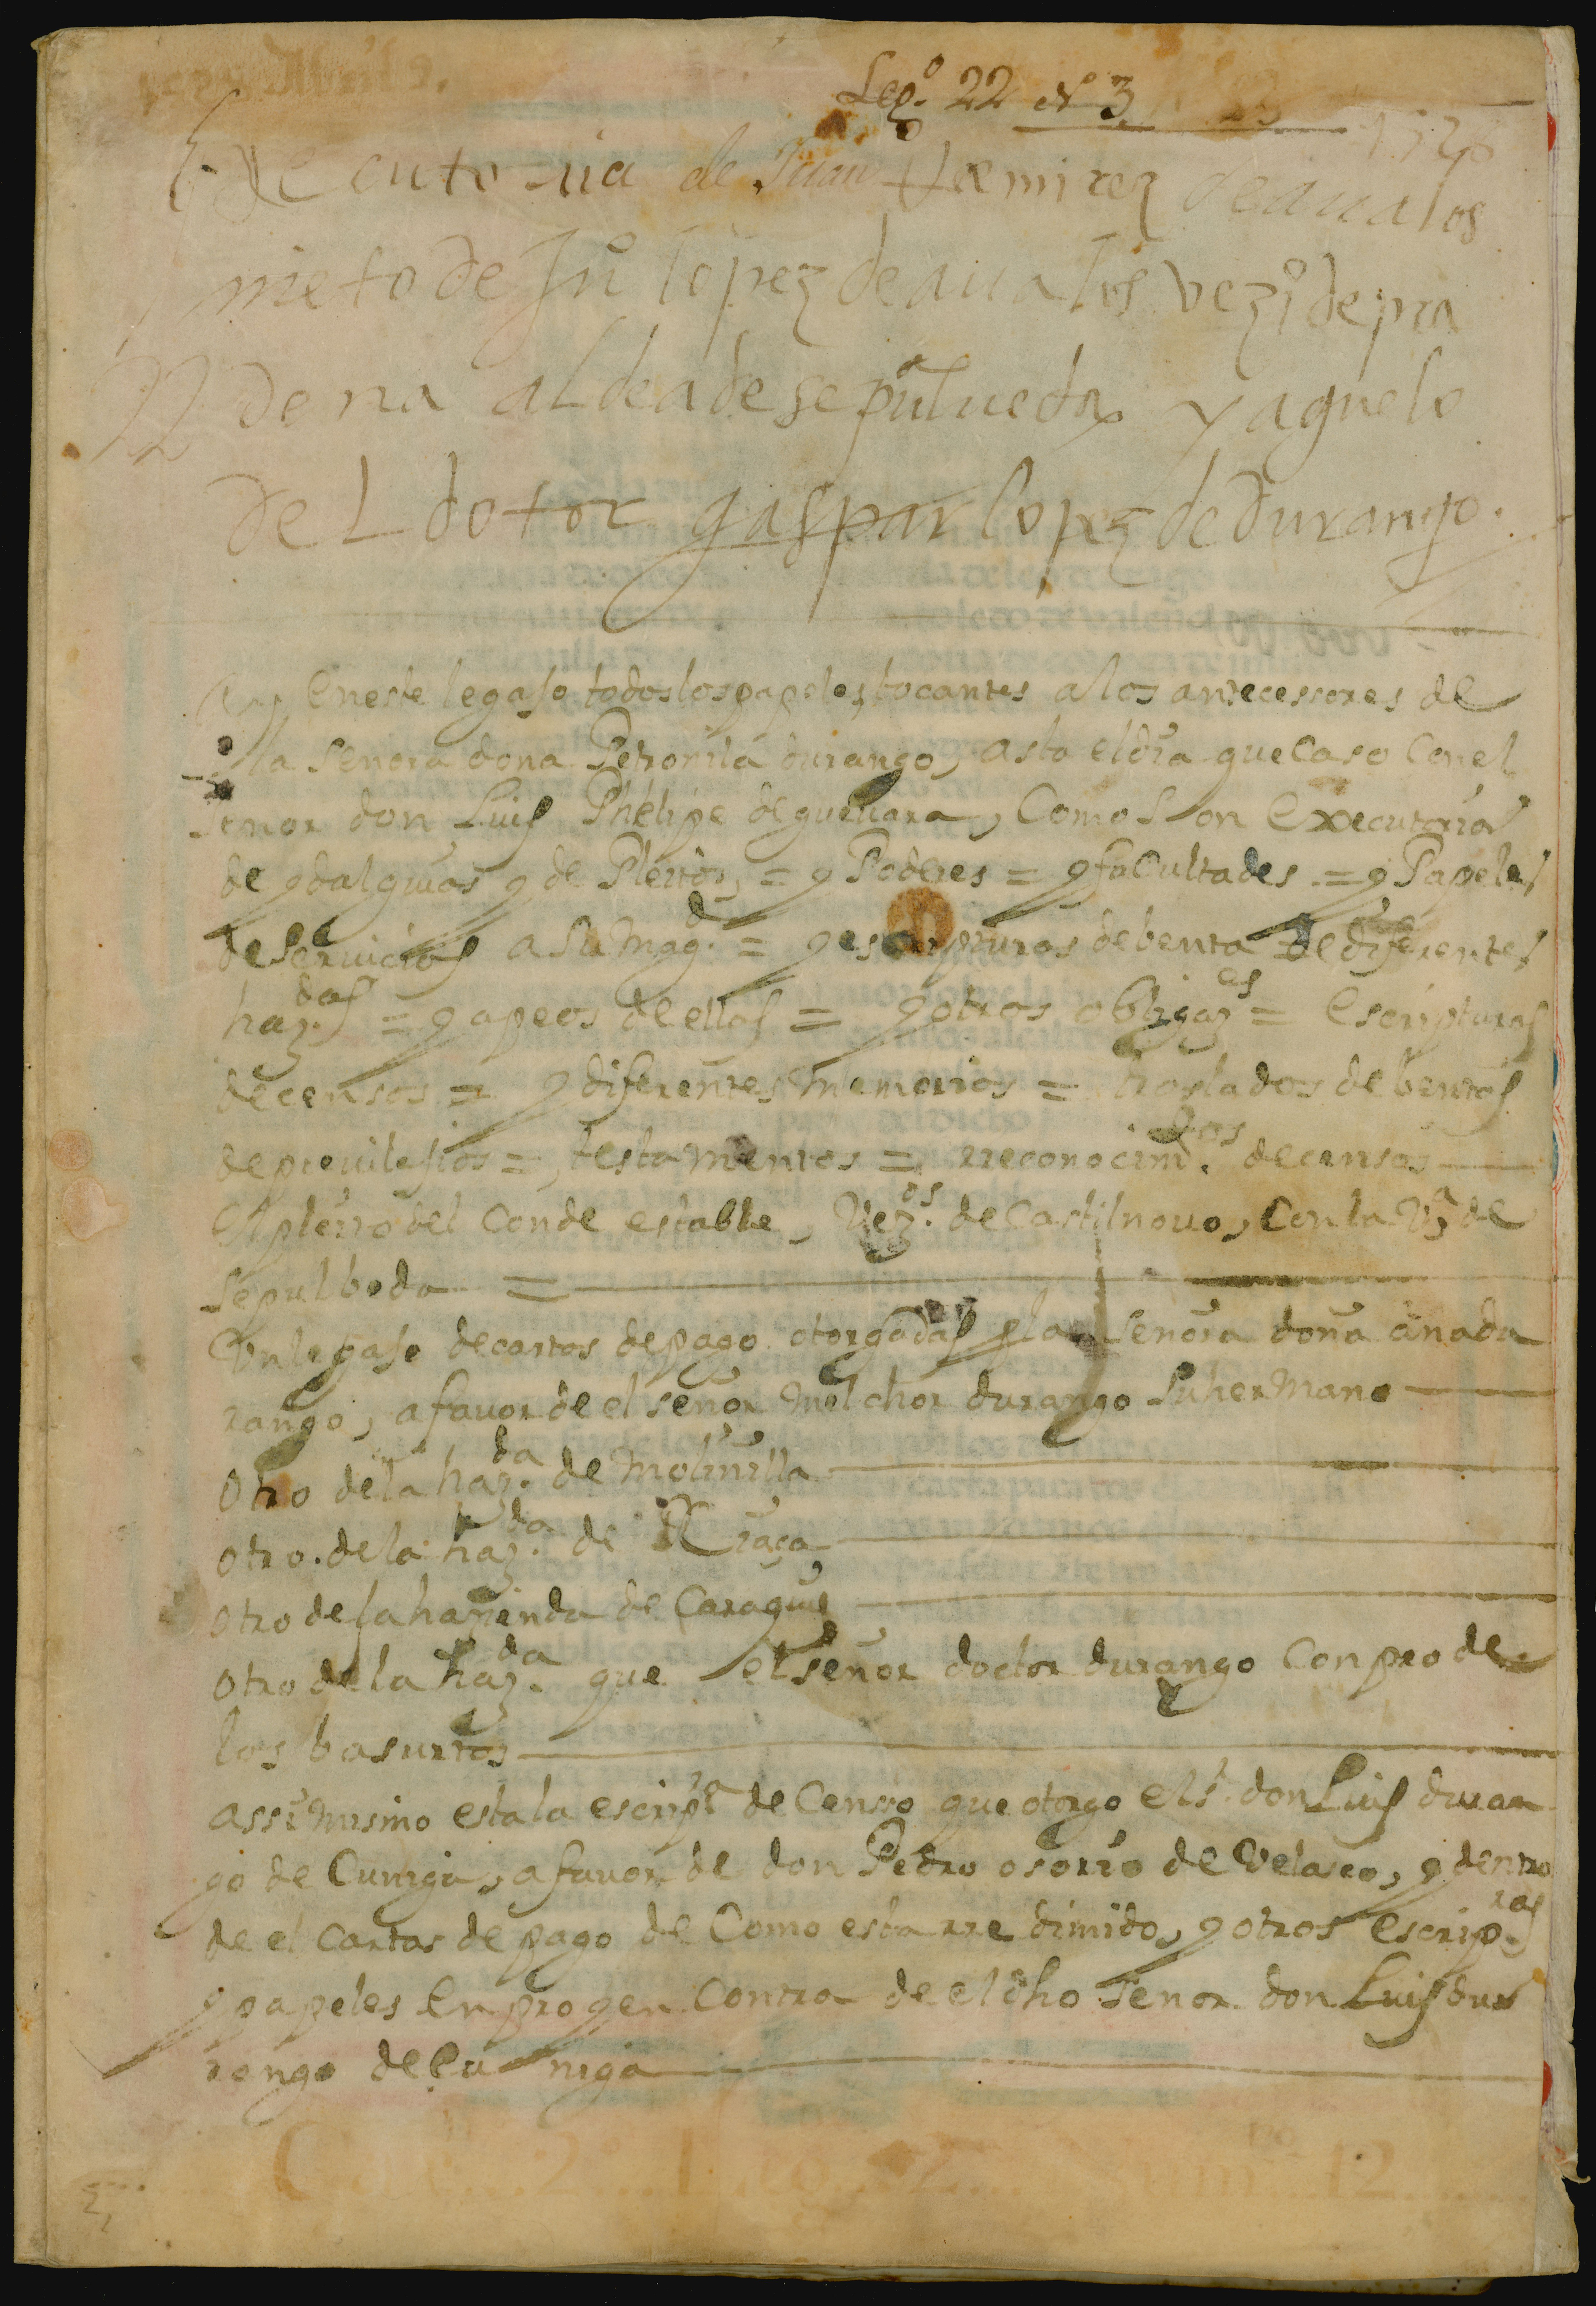 Leg.º 22 Nº 3
Executoria de Juan Ramirez de aualos
nieto de Juº lopez de aualos vezº de pra
dena aldea de sepulueda y aguelo
del dotor gaspar lopez de durango.
Ay en este legajo todos los papeles tocantes a los antecessores de
la señora doña Petronila durango, asta el dia que caso con el
señor don Luis Phelipe de gueuara, Como son executoria
de ydalguias y de Pleitos, = y Poderes = y faCultades = y Papeles
de seruicios a su Magd. = y escripturas de benta de diferentes
haz.das = y apeos de ellas = y otras obligaz.es = Escripturas
de censos = y diferentes memorias = traslados de bentas
de preuilejios =, testamentos =, rreconocim.tos de censos
El pleito del Conde estable, Vez.os de Castilnouo, Con la Vª de
sepulbeda =
Un legajo de cartas de pago otorgadas p la señora doña ana du
rango, a fauor de el señor melchor durango su hermano
Otro de la haz.da de Molinilla
otro. de la haz.da de Riaça
otro de la hazienda de Caraquis
otro de la haz.da que el señor doctor durango Conpro de
los basurtos
assi mismo esta la escripª de Censo que otorgo el sr. don Luis duran
go de Cuniga, a fauor de don Pedro osorio de Velasco, y dentro
de el cartas de pago de Como esta rredimido, y otras escrip.ras
y papeles en pro y en Contra de el dho señor don Luis du
rango de Cuniga